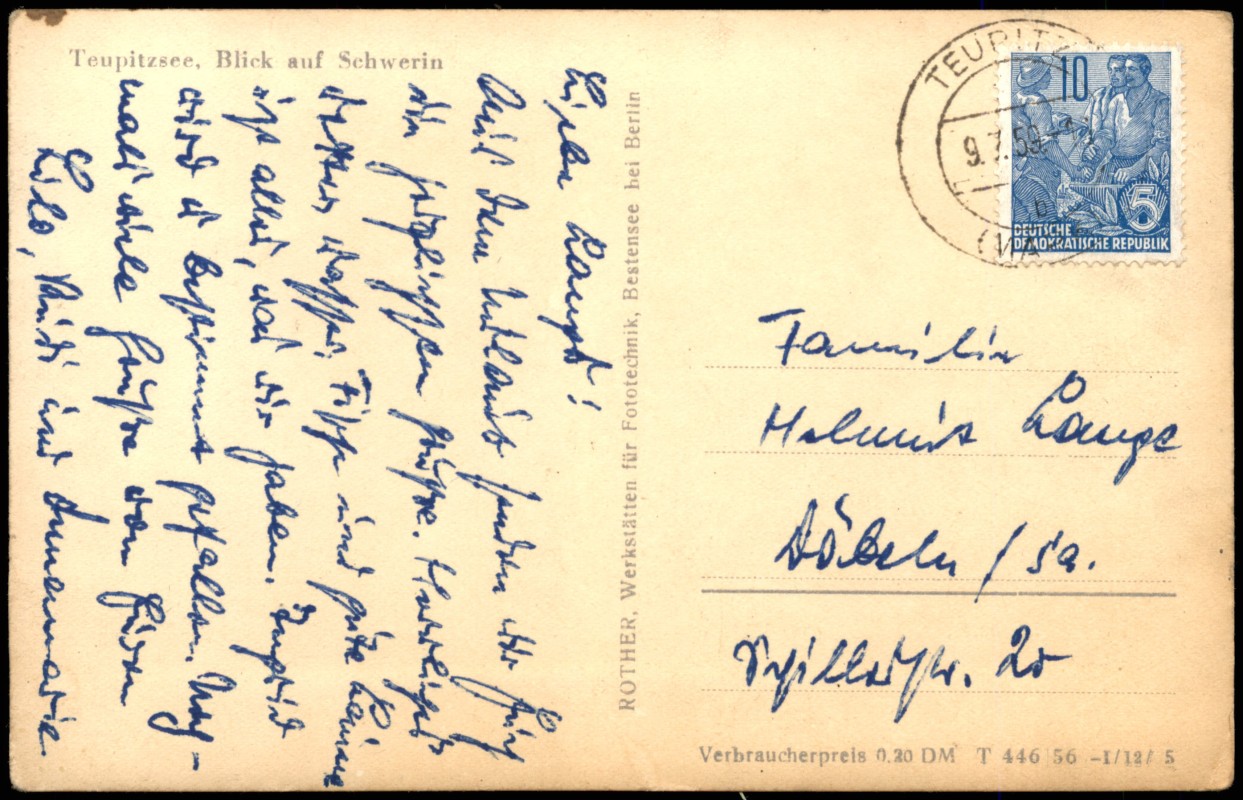 Teupitzsee, Blick auf Schwerin
Liebe Langes!
Aus dem Urlaub senden wir Euch
die herzlichsten Grüße. Herrliches
Wetter, Wasser, Fische und gute Laune
ist alles, was wir haben. Ingrid
wird es bestimmt gefallen. Noch-
mals viele Grüße von Euren
Lilo, Rudi und Annemarie.
ROTHER, Werkstätten für Fototechnik, Bestensee bei Berlin
TEUPITZ
9.7.59
10
5
DEUTSCHE
DEMOKRATISCHE REPUBLIK
Familie
Helmut Lange
Döbeln / Sa.
Schillerstr. 20
Verbraucherpreis 0.20 DM T 446 56 -1/12/ 5